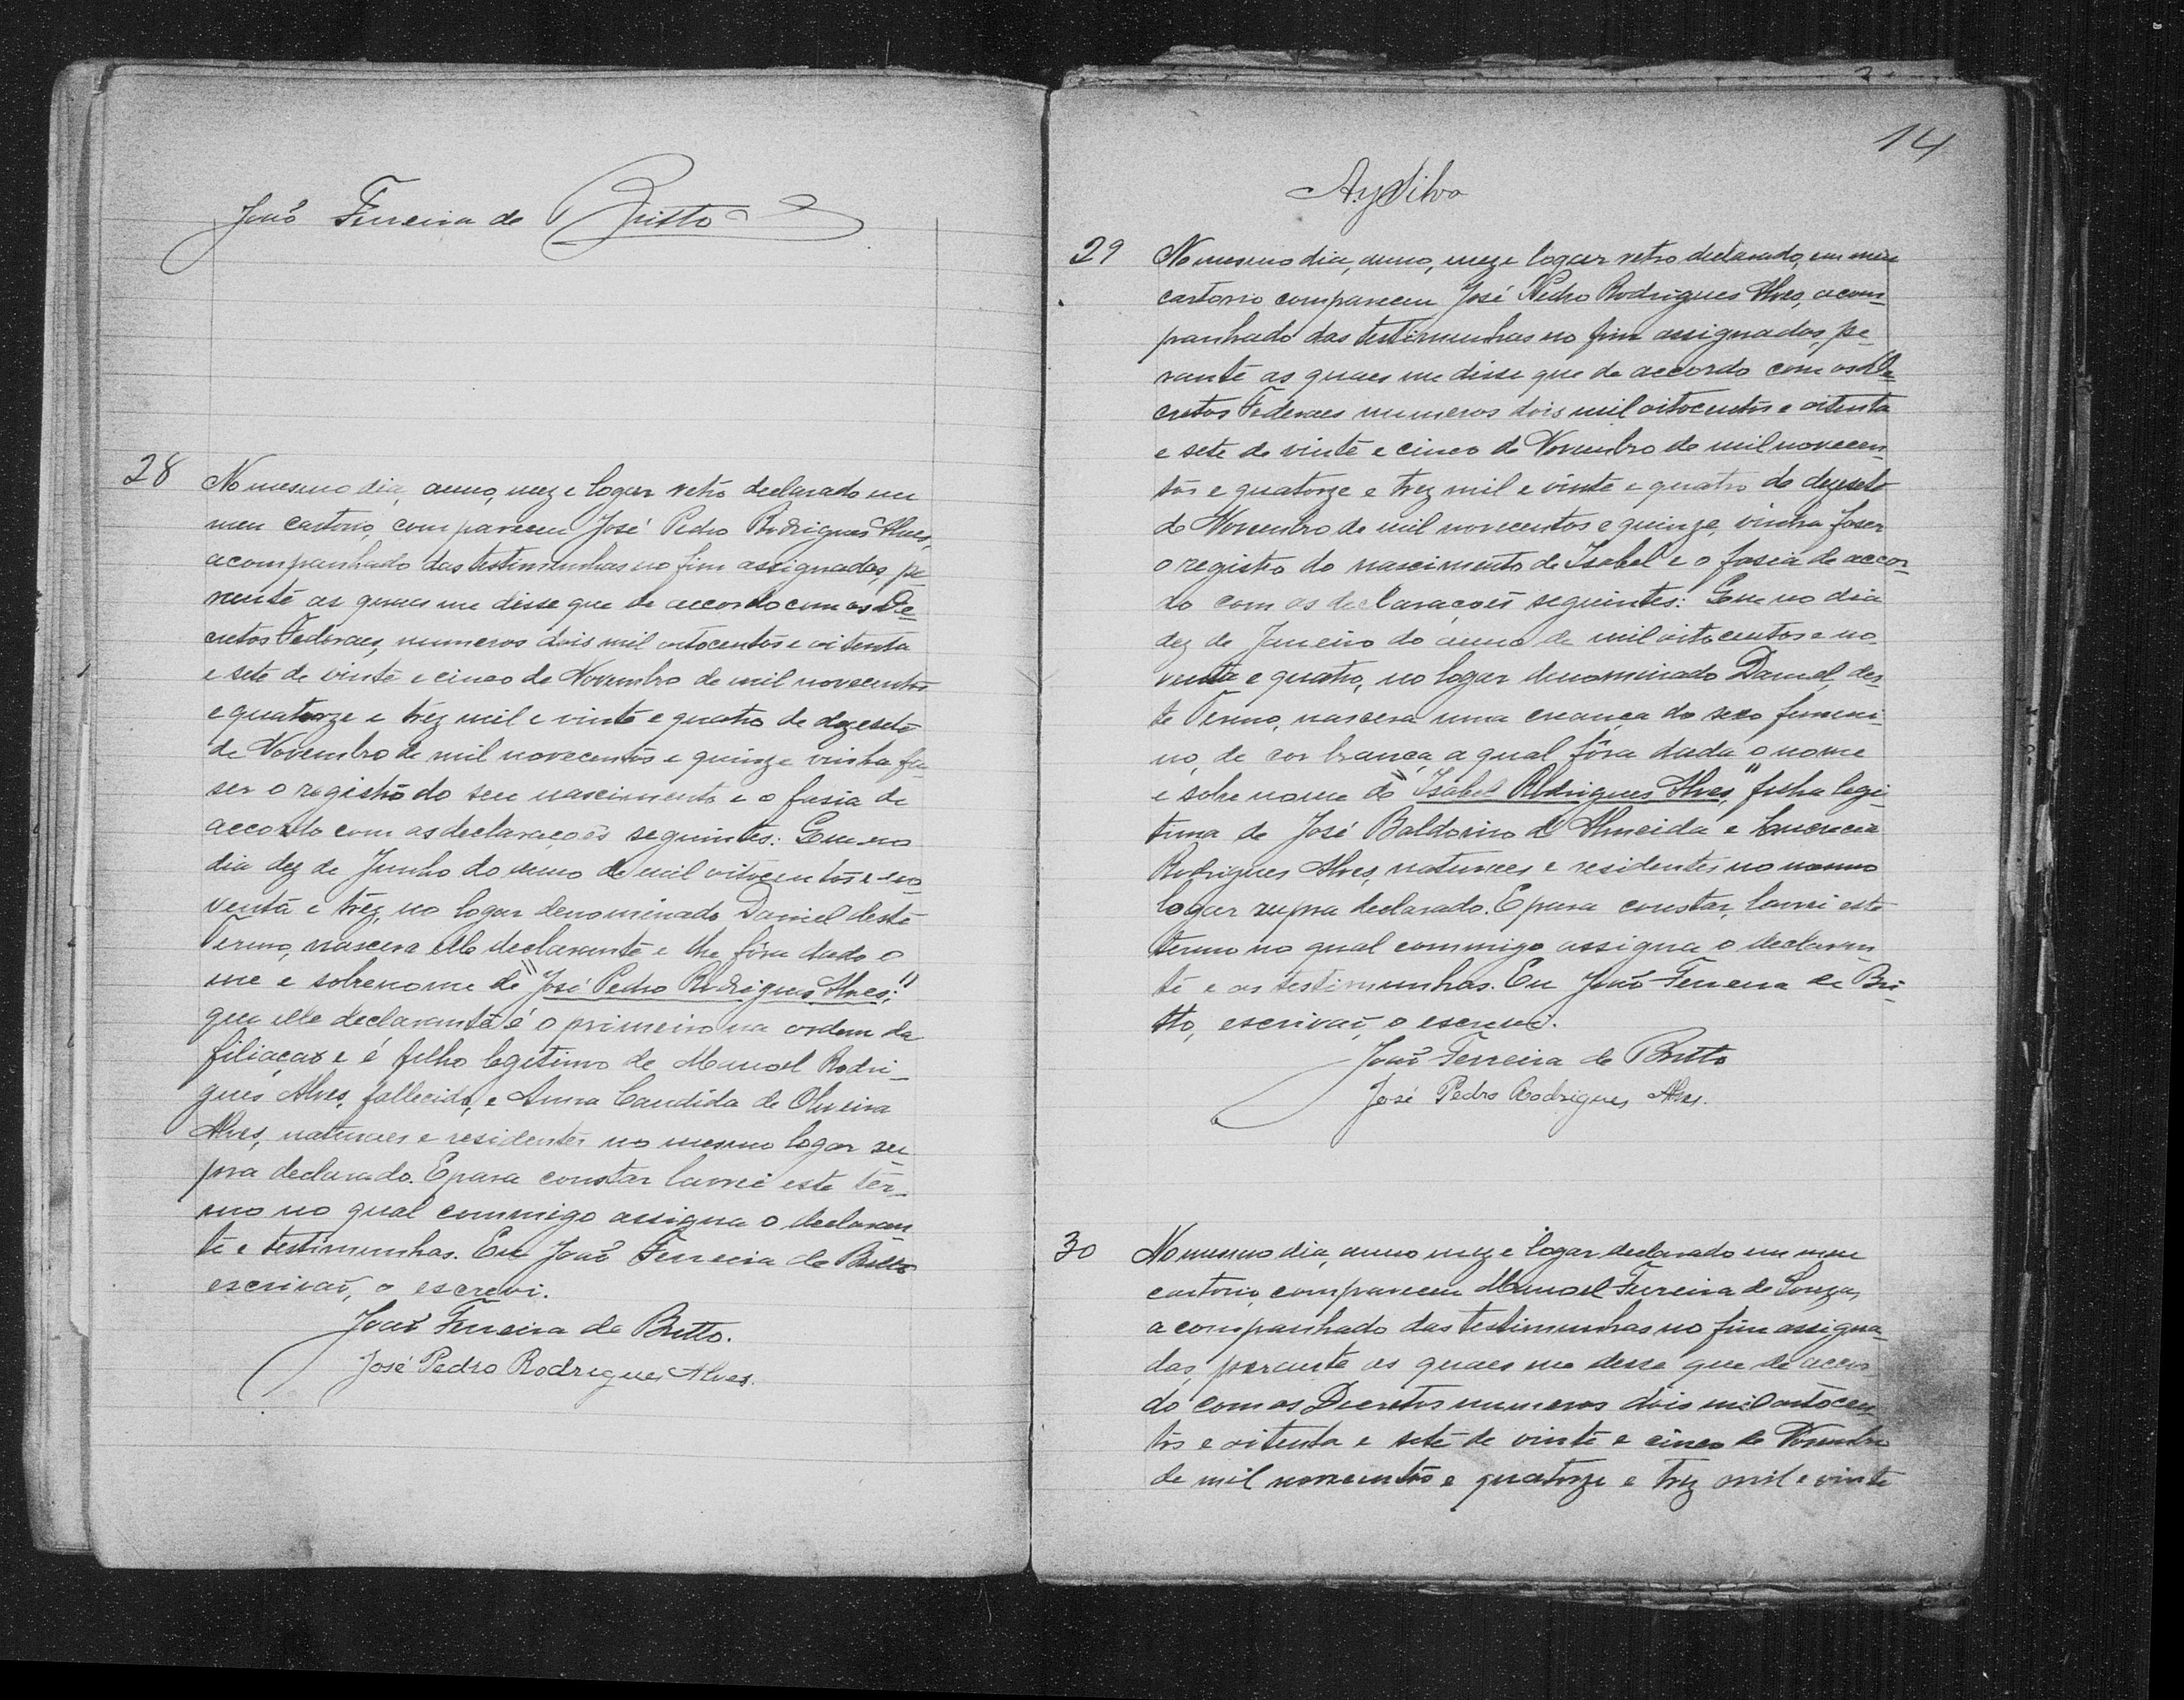 João Ferreira de Britto
28
No mesmo dia, anno, mez e logar retro declarado em
meu cartorio, compareceu José Pedro Rodrigues Alves,
acompanhado das testimunhas no fim assignadas, pe
rante as quaes me disse que de accordo com os De
cretos Federaes, numeros dois mil oitocentos e oitenta
e sete de vinte e cinco de Novembro de mil novecentos
e quatorze e trez mil e vinte e quatro de dezesete
de Novembro de mil novecentos e quinze vinha fa
ser o registro do seu nascimento e o fasia de
accordo com as declarações seguintes: Que no
dia dez de Junho do anno de mil oitocentos e no
venta e trez, no logar denominado Daniel deste
Termo, nascera elle declarante e lhe fôra dado o
me e sobrenome de "José Pedro Rodrigues Alves;"
que elle declarante é o primeiro na ordem da
filiação e é filho legitimo de Manoel Rodri_
gues Alves, fallecido, e Anna Candida de Oliveira
Alves, naturaes e residentes no mesmo logar su
pra declarado. E para constar lavrei este ter_
mo no qual commigo assigna o declaran
te e testimunhas. Eu João Ferreira de Britto
escrivaõ, o escrevi.
João Ferreira de Britto.
José Pedro Rodrigues Alves.
14
Silva
29
No mesmo dia, anno, mez e logar retro declarado, em meu
cartorio compareceu José Pedro Rodrigues Alves, acom_
panhado das testimunhas no fim assignadas, pe_
rante as quaes me disse que de accordo com os De_
cretos Federaes numeros dois mil oitocentos e oitenta
e sete de vinte e cinco de Novembro de mil novecen_
tos e quatorze e trez mil e vinte e quatro de dezesete
de Novembro de mil novecentos e quinze, vinha faser
o registro do nascimento de Isabel e o fasia de accor_
do com as declarações seguintes: Que no dia
dez de Janeiro do anno de mil oitocentos e no
venta e quatro, no logar denominado Daniel, des_
te Termo, nascera uma creança do sexo femeni_
no, de cor branca, a qual fôra dada o nome
e sobrenome de "Isabel Rodrigues Alves," filha legi_
tima de José Baldoino de Almeida e Lucrecia
Rodrigues Alves, naturaes e residentes no mesmo
logar supra declarado. E para constar, lavrei este
termo no qual commigo assigna o declaran_
te e as testimunhas. Eu João Ferreira de Bri_
tto, escrivaõ, o escrevi.
João Ferreira de Britto
José Pedro Rodrigues Alves.
30
No mesmo dia, anno mez e logar declarado em meu
cartorio, compareceu Manoel Ferreira de Souza,
acompanhado das testimunhas no fim assigna_
das, perante as quaes me disse que de accor
do com os Decretos numeros dois mil oitocen_
tos e oitenta e sete de vinte e cinco de Novembro
de mil novecentos e quatorze e trez mil e vinte